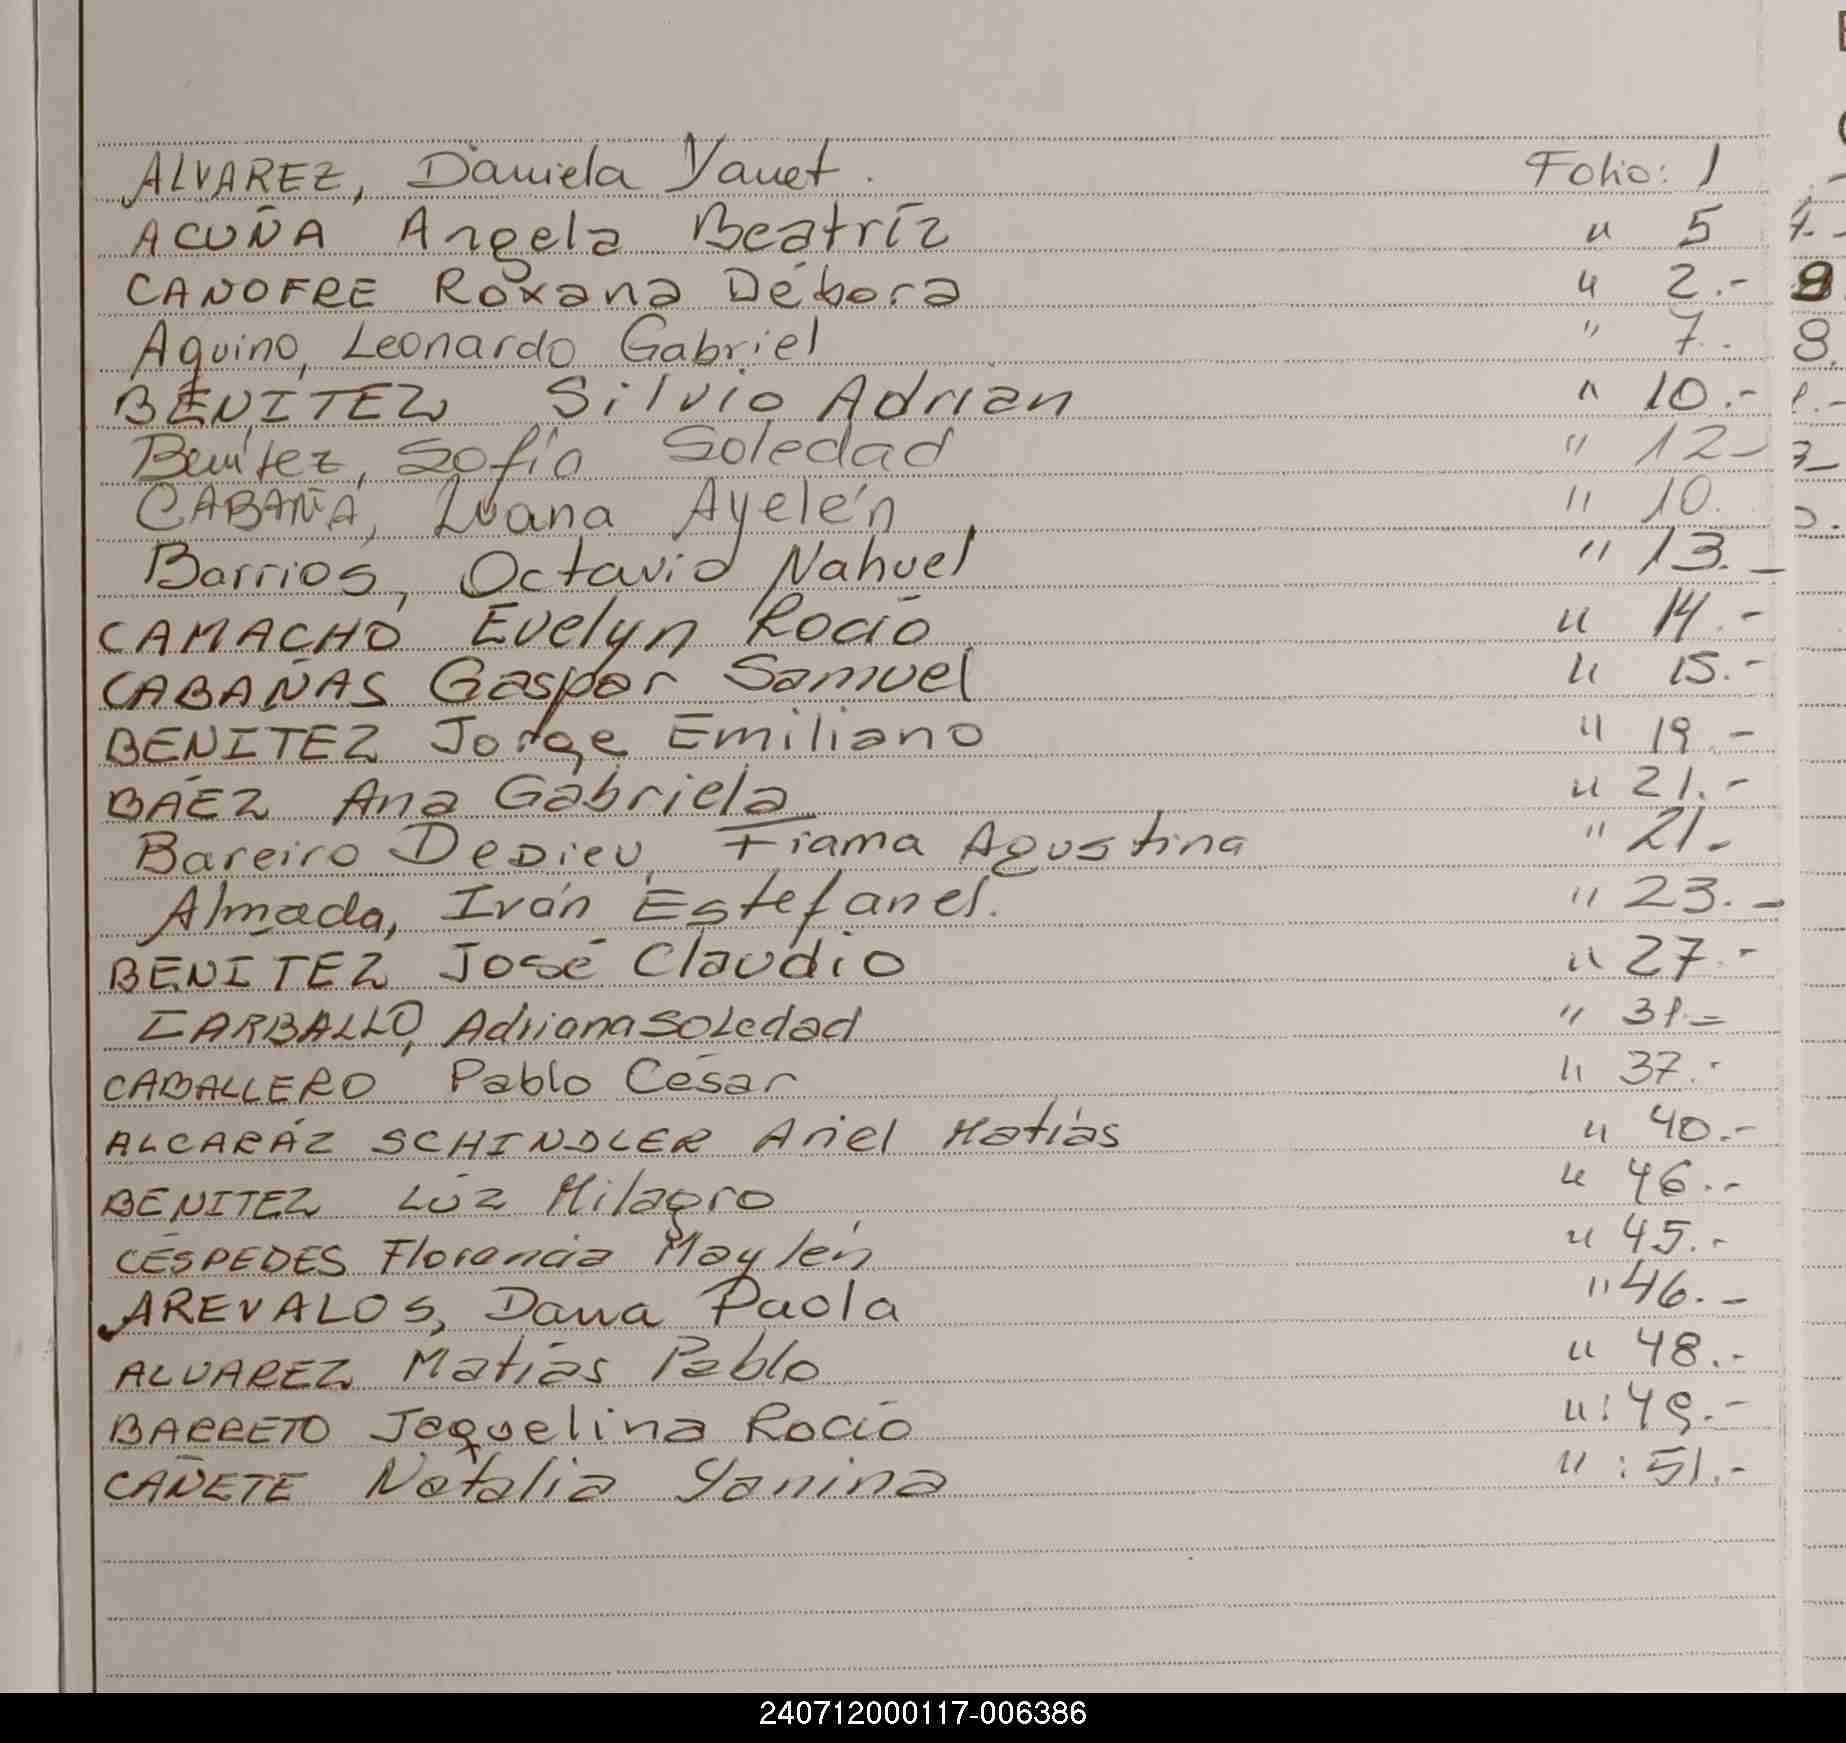 ALVAREZ, Daniela Yanet. Folio: 1
ACUÑA Angela Beatríz " 5
CANOFRE Roxana Débora " 2.-
Aquino, Leonardo Gabriel " 7.
BENÍTEZ Silvio Adrián " 10.-
Benítez, Sofía Soledad " 12-
CABAÑA, Luana Ayelén " 10.
Barrios, Octavio Nahuel " 13.-
CAMACHO Evelyn Rocío " 14.-
CABAÑAS Gaspar Samuel " 15.-
BENITEZ Jorge Emiliano " 19.-
BÁEZ Ana Gabriela " 21.-
Bareiro Dedieu, Fiama Agustina " 21.-
Almada, Iván Estefanel. " 23.-
BENITEZ José Claudio " 27.-
CARBALLO, Adriana Soledad " 31.-
CABALLERO Pablo César " 37.-
ALCARÁZ SCHINDLER Ariel Matías " 40.-
BENITEZ Lúz Milagro " 46.-
CÉSPEDES Florencia Maylén " 45.-
AREVALOS, Dana Paola " 46.-
ALVAREZ Matías Pablo " 48.-
BARRETO Jaquelina Rocío ": 49.-
CAÑETE Natalia Yanina ": 51.-
240712000117-006386